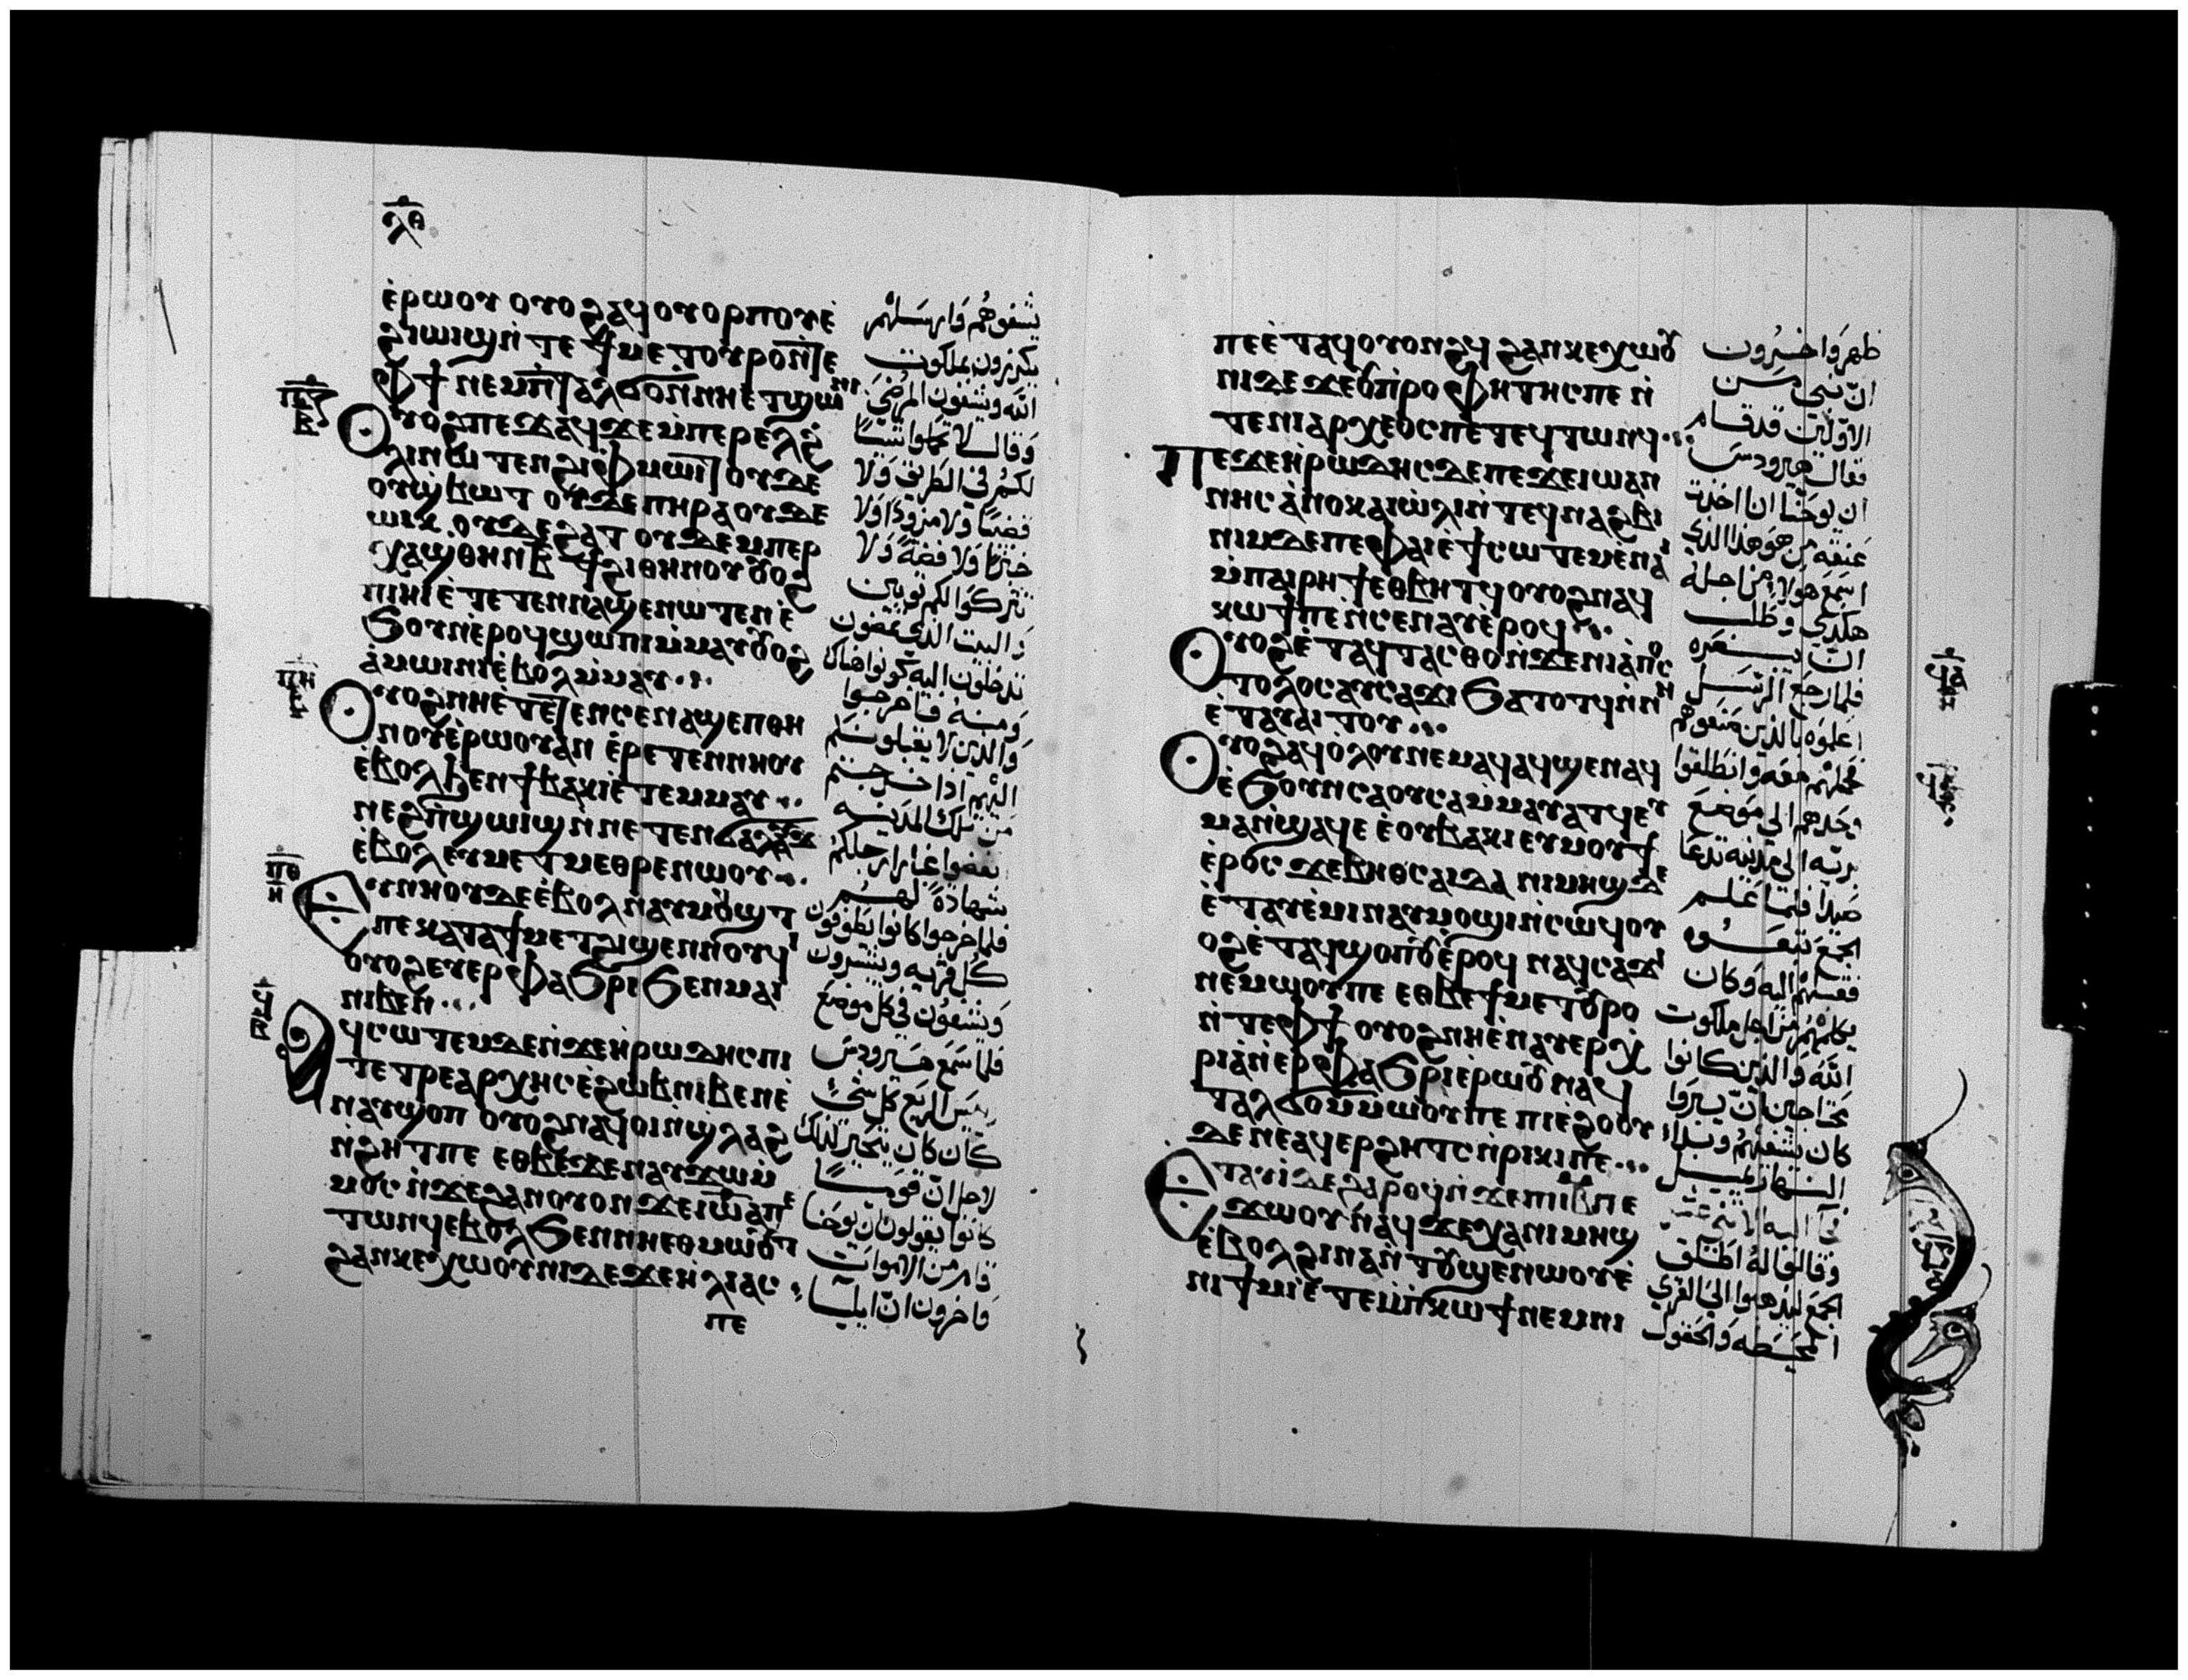 ⲗⲑ
ⲉ̀ⲣⲱⲟⲩ ⲟⲩⲟϩⲁϥⲟⲩⲟⲣⲡⲟⲩⲉ̀
ϩⲓⲱⲓϣⲛ̀ⲧⲉϯⲙⲉⲧⲟⲩⲣⲟⲛ̀ⲧⲉ
ⲫϯ ⲛⲉⲙⲛ̀ⲧⲁⲗϭⲟⲛ̀ⲛⲏⲉⲧϣⲱⲛⲓ
ⲟⲩⲟϩⲡⲉϫⲁϥϫⲉⲙ̀ⲡⲉⲣⲉⲗϩ̀
ⲗⲓⲛⲱⲧⲉⲛϩⲓⲫⲙⲱⲓⲧ ⲟⲩⲇⲉ
ⲟⲩϣ̀ⲃⲱⲧ ⲟⲩⲇⲉⲡⲏⲣⲁⲟⲩⲇⲉ
ⲱⲓⲕ ⲟⲩⲇⲉϩⲁⲧ ⲟⲩⲇⲉⲙⲡⲉⲣ
ⲭⲁϣ̀ⲑⲏⲛⲃ̅ϯϩⲓⲑⲏⲛⲟⲩⲟⲩⲟϩ
ⲡⲓⲏⲓⲉ̀ⲧⲉⲧⲉⲛⲛⲁϣⲉⲛⲱⲧⲉⲛⲉ̀
ϧⲟⲩⲛⲉ̀ⲣⲟϥϣⲱⲡⲓⲙ̀ⲙⲁⲩⲟⲩⲟϩ
ⲁ̀ⲙⲱⲓⲛⲓⲉ̀ⲃⲟⲗⲙ̀ⲙⲁⲩ
ⲟⲩⲟϩⲛⲏⲉ̀ⲧⲉⲛ̀ⲥⲉⲛⲁϣⲉⲡⲑⲏ
ⲛⲟⲩⲉ̀ⲣⲱⲟⲩⲁⲛ ⲉ̀ⲣⲉⲧⲉⲛⲛⲏⲟⲩ
ⲉ̀ⲃⲟⲗϧⲉⲛϯⲃⲁⲕⲓⲉ̀ⲧⲉⲙⲙⲁⲩ
ⲛⲉϩⲡ̀ϣⲱⲓϣⲛ̀ⲛⲉⲧⲉⲛϭⲁⲗⲁⲩϫ
ⲉ̀ⲃⲟⲗⲉⲩⲙⲉⲧⲙⲉⲑⲣⲉⲛⲱⲟⲩ
ⲉⲩⲛⲏⲟⲩⲇⲉⲉ̀ⲃⲟⲗⲛⲁⲩⲙⲟϣⲧ
ⲡⲉⲕⲁⲧⲁϯⲙⲉⲧϩⲓϣⲉⲛⲛⲟⲩϥⲓ
ⲟⲩⲟϩⲉⲩⲉⲣⲫⲁϧⲣⲓϧⲉⲛⲙⲁⲓ
ⲛⲓⲃⲉⲛ
ⲁϥⲥⲱⲧⲉⲙⲇⲉⲛ̀ϫⲉⲏ̀ⲣⲱⲇⲏⲥⲡⲓ
ⲧⲉⲧⲣⲉⲁⲣⲭⲏⲥⲉ̀ϩⲱⲃⲛⲓⲃⲉⲛⲉ̀
ⲛⲁⲩϣⲟⲡ ⲟⲩⲟϩⲛⲁϥⲟⲓⲛ̀ϣⲗⲁϩ
ⲛ̀ϩⲏⲧⲡⲉ ⲉⲑⲃⲉϫⲉⲛⲁⲩϫⲱⲙ̀
ⲙⲟⲥ ⲛ̀ϫⲉϩⲁⲛⲟⲩⲟⲛϫⲉⲓⲱⲁⲛⲛ
ⲧⲱⲛϥⲉⲃⲟⲗϧⲉⲛⲛⲏⲉⲑⲙⲱⲟⲩⲧ
ϩⲁⲛⲕⲉⲭⲱⲟⲩⲛⲓⲇⲉϫⲉⲏ̀ⲗⲓⲁⲥ
ⲡⲉ
يشفوهم وارسلهم
يكرزون بملكوت
الله ويشفون المرضى
وقال لا تحملوا شيئا
لكم في الطريق ولا
قضيبا ولا مزودا ولا
خبزا ولا فضة ولا
تتركوا لكم ثوبين
والبيت الذي تمضون
تدخلون اليه كونوا هناك
ومنه فاخرجوا
والذين لا يقبلونكم
اليهم اذا خرجتم
من تلك المدينه
انفضوا غبار ارجلكم
شهادة لهم
فلما خرجوا كانوا يطوفون
كل قريه ويبشرون
ويشفون في كل موضع
فلما سمع هيرودس
رئيس الربع كل شئ
كان كان يتحير لذلك
لاجل ان قوما
كانوا يقولون ان يوحنا
قام من الاموات
واخرون ان ايليا
ⲡⲉⲉ̀ⲧⲁϥⲟⲩⲟⲛϩϥ ϩⲁⲛⲕⲉⲭⲱⲟⲩ
ⲛⲓⲇⲉϫⲉⲟⲩⲡⲣⲟⲫⲏⲧⲏⲥⲡⲉ ⲛ̀
ⲧⲉⲛⲓⲁⲣⲭⲉⲟⲥⲡⲉⲧⲉϥⲧⲱⲛϥ
ⲡⲉϫⲉⲏ̀ⲣⲱⲇⲏⲥϫⲉⲡⲉϫⲉⲓⲱⲁⲛ
ⲛⲏⲥ ⲁ̀ⲛⲟⲕⲁⲓⲱ̀ⲗⲓⲛ̀ⲧⲉϥⲛⲁϩⲃⲓ
ⲛⲓⲙϫⲉⲡⲉⲫⲁⲓⲉ̀ϯⲥⲱⲧⲉⲙⲉ̀ⲛⲁⲓ
ⲙ̀ⲡⲁⲓⲣⲏϯⲉⲑⲃⲏⲧϥⲟⲩⲟϩⲛⲁϥ
ⲕⲱϯⲡⲉⲛ̀ⲥⲉⲛⲁⲩⲉ̀ⲣⲟϥ
ⲟⲩⲟϩⲉ̀ⲧⲁⲩⲧⲁⲥⲑⲟⲛ̀ϫⲉⲛⲓⲁ̀ⲡⲟⲥ
ⲧⲟⲗⲟⲥⲁⲩⲥⲁϫⲓϧⲁⲧⲟⲧϥⲛ̀ⲛⲏ
ⲉ̀ⲧⲁⲩⲁⲓⲧⲟⲩ
ⲟⲩⲟϩⲁϥⲟ̀ⲗⲟⲩⲛⲉⲙⲁϥⲁϥϣⲉⲛⲁϥ
ⲉ̀ϧⲟⲩⲛⲥⲁⲟⲩⲥⲁⲙ̀ⲙⲁⲩⲁⲧϥⲉⲩ
ⲙⲁⲛ̀ϣⲁϥⲉ ⲉ̀ⲟⲩⲃⲁⲕⲓⲉⲩⲙⲟⲩϯ
ⲉ̀ⲣⲟⲥ ϫⲉⲃⲏⲑⲥⲁⲓⲇⲁ ⲛⲓⲙⲏϣⲇⲉ
ⲉ̀ⲧⲁⲩⲉ̀ⲙⲓⲛⲁⲩⲙⲟϣⲓⲛ̀ⲥⲱϥⲟⲩ
ⲟϩⲉ̀ⲧⲁϥϣⲟⲡⲟⲩⲉ̀ⲣⲟϥ ⲛⲁϥⲥⲁϫⲓ
ⲛⲉⲙⲱⲟⲩⲡⲉ ⲉⲑⲃⲉϯⲙⲉⲧⲟⲩⲣⲟ
ⲛ̀ⲧⲉⲫϯ ⲟⲩⲟϩⲛⲏⲉ̀ⲛⲁⲩⲉⲣⲭ
ⲣⲓⲁⲛ̀ⲉⲣⲫⲁϧⲣⲓⲉ̀ⲣⲱⲟⲩ ⲛⲁϥ
ⲧⲁⲗϭⲟⲙ̀ⲙⲱⲟⲩⲡⲉ ⲡⲓⲉϩⲟⲟⲩ
ⲇⲉⲛⲉⲁϥⲉⲣϩⲏⲧⲥⲛ̀ⲣⲓⲕⲓⲡⲉ
ⲉⲧⲁⲩⲓⲇⲉϩⲁⲣⲟϥⲛ̀ϫⲉⲡⲓⲓⲃ̅ⲡⲉ
ϫⲱⲟⲩⲛⲁϥϫⲉⲭⲁⲛⲓⲙⲏϣ
ⲉ̀ⲃⲟⲗϩⲓⲛⲁⲛ̀ⲧⲟⲩϣⲉⲛⲱⲟⲩⲉ̀
ⲛⲓϯⲙⲓⲉ̀ⲧⲉⲙ̀ⲡⲕⲱϯⲛⲉⲙⲛⲓ
ظهر واخرون
ان نبي من
الاولين قد قام
فقال هيرودس
ان يوحنا انا اخذت
عنقه من هو هذا الذي
اسمع هولاء من اجله
هكذى وطلب
ان يبصره
فلما رجع الرسل
اعلموه بالذين صنعوهم
فحملهم معه وانطلقوا
وحدهم الي موضع
بريه الي مدينه تدعا
صيدا فلما علم
الجمع تبعوه
فقبلهم اليه وكان
يكلمهم من اجل ملكوت
الله والذين كانوا
محتاجين ان يبروا
كان يشفيهم وبدا
النهار يميل
وقالوا له اطلق
الجمع ليذهبوا الي القري
المحيطه والحقول